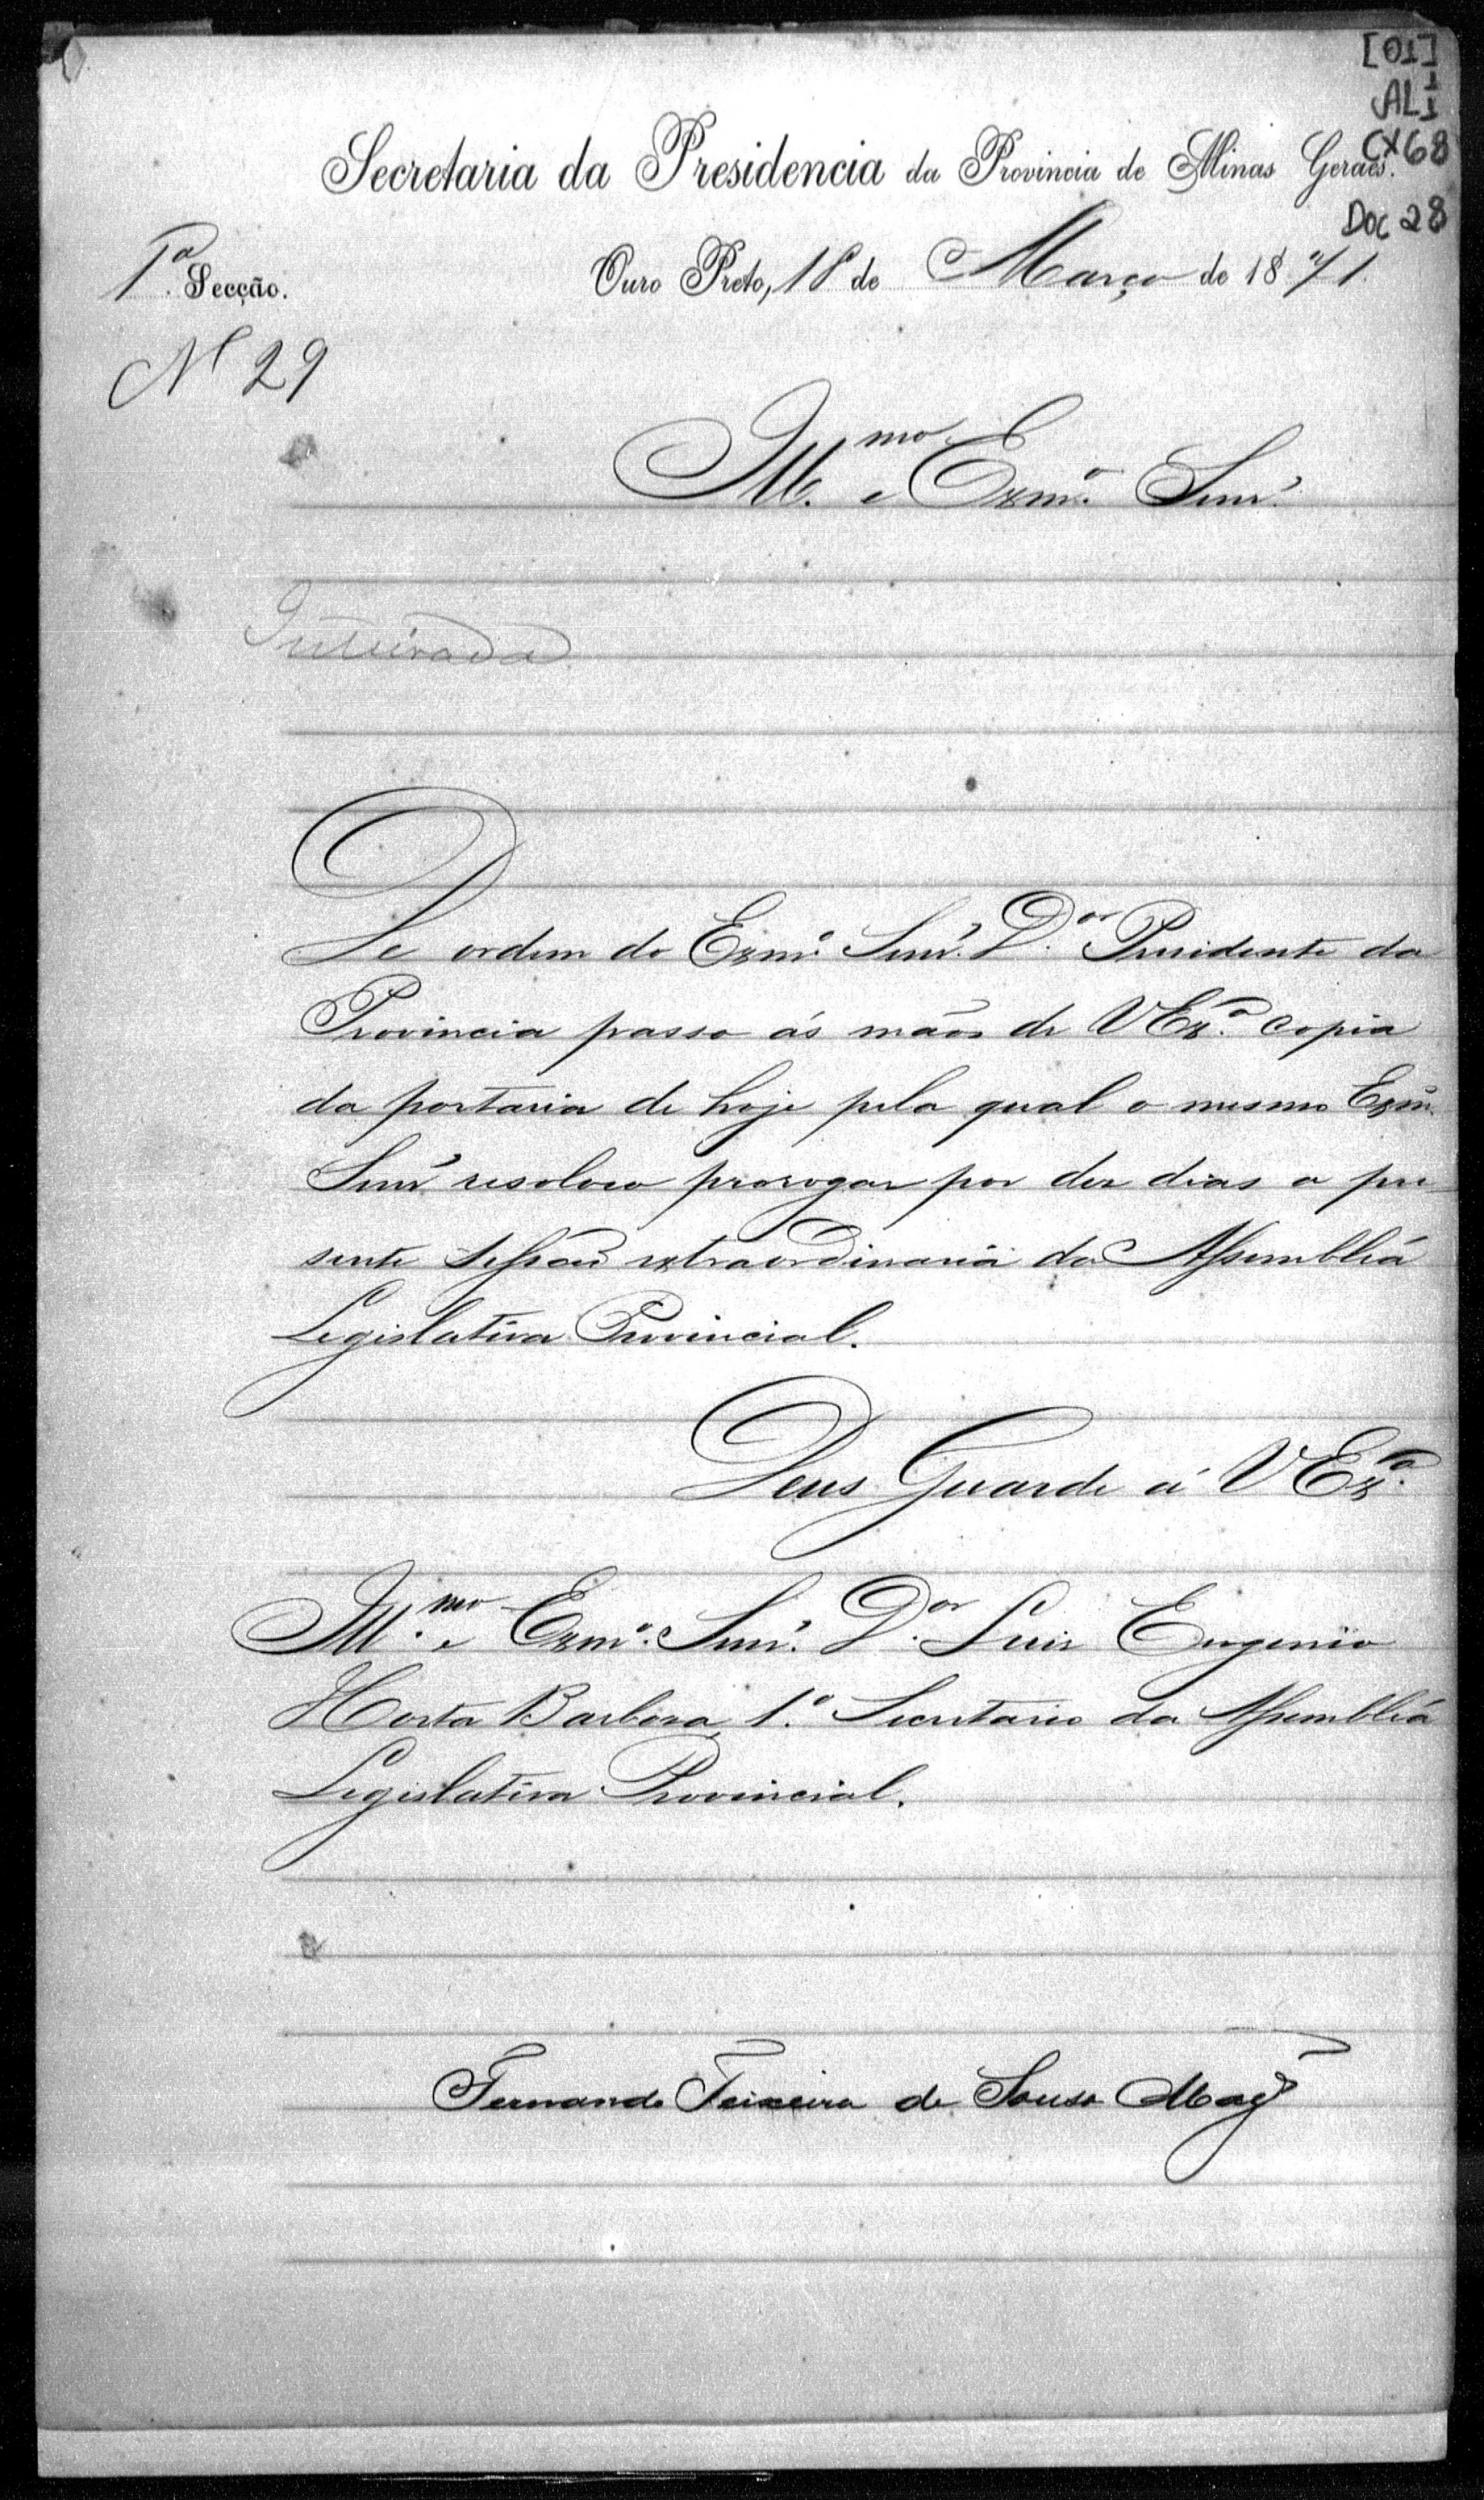 [01]
AL 1
1
CX 68
Doc 28
Secretaria da Presidencia da Provincia de Minas Geraes.
1ª Secção.
Ouro Preto, 18 de Março de 1871.
Nº 29
Ill.mo e Exmº. Senr.
Inteirada
De ordem do Exmº. Senr. D.or Presidente da
Provincia passo ás mãos de VExª. copia
da portaria de hoje pela qual o mesmo Exm.
Senr. resolveo prorogar por dez dias a pre-
sente sessão extraordinaria da Assembléa
Legislativa Provincial.
Deus Guarde á VExª.
Ill.mo e Exmº. Senr. D.or Luis Eugenio
Horta Barbosa, 1.º Secretario da Assembléa
Legislativa Provincial.
Fernando Teixeira de Sousa Mag.